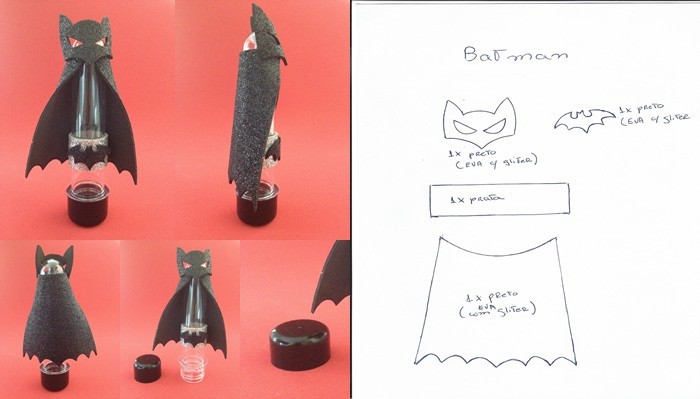 Batman
1x preto
(EVA c/ gliter)
1x preto
(EVA c/ gliter)
1x prata
1x preto
EVA
(com gliter)